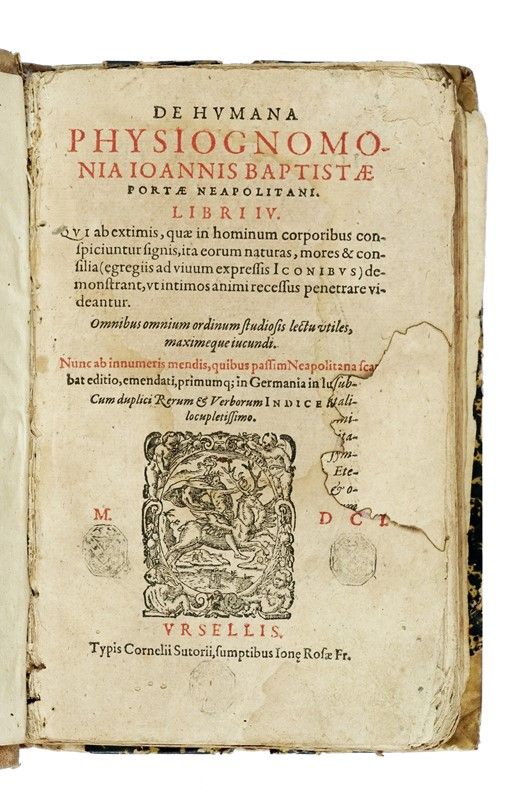 DE HVMANA
PHYSIOGNOMO-
NIA IOANNIS BAPTISTÆ
PORTÆ NEAPOLITANI.
LIBRI IV.
QVI ab extimis, quæ in hominum corporibus con-
spiciuntur signis, ita eorum naturas, mores & con-
silia (egregiis ad viuum expressis ICONIBVS) de-
monstrant, vt intimos animi recessus penetrare vi-
deantur.
Omnibus omnium ordinum studiosis lectu vtiles,
maximeque iucundi.
Nunc ab innumeris mendis, quibus passim Neapolitana sca
bat editio, emendati, primumq; in Germania in lu sub-
Cum duplici Rerum & Verborum INDICE ali-
locupletissimo. mi-
ita-
sym-
Ete-
& o-
M. DCI
VRSELLIS.
Typis Cornelii Sutorii, sumptibus Ionę Rosæ Fr.